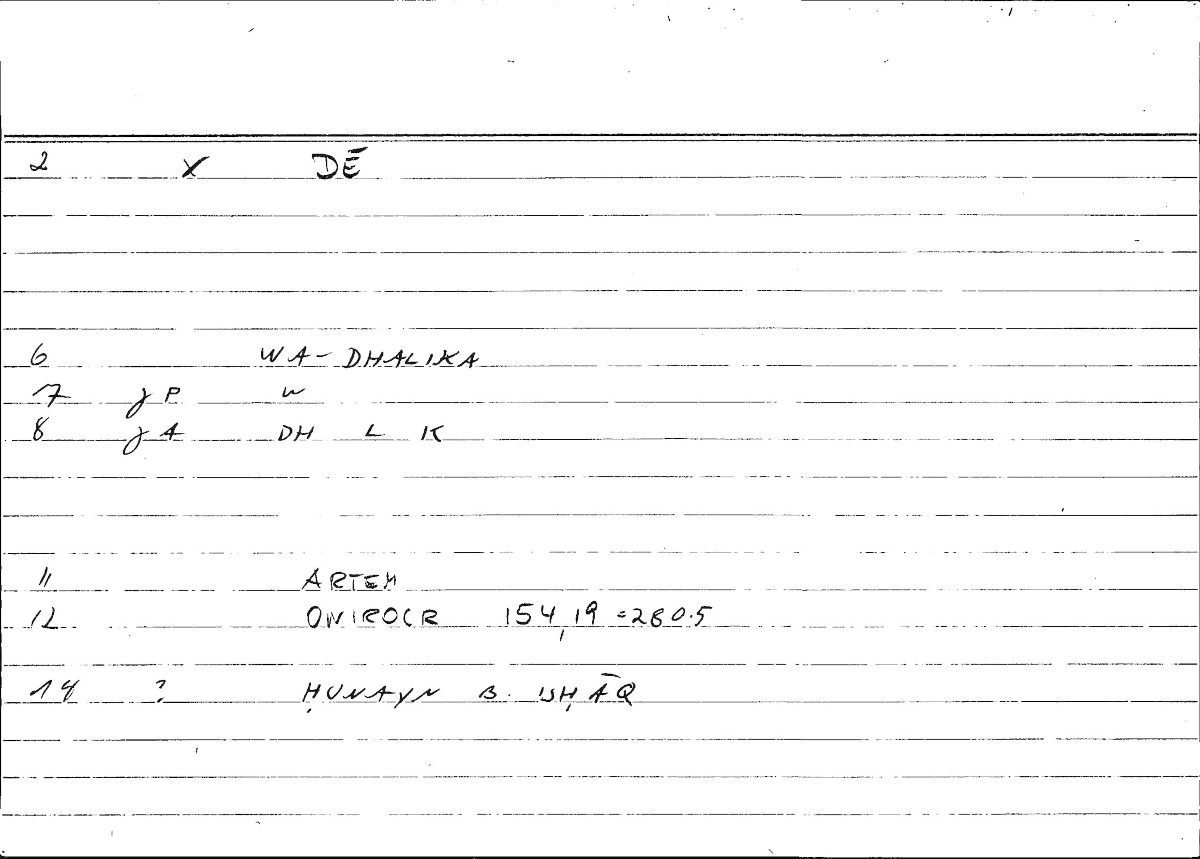 2 X DĒ
6 WA-DHALIKA
7 g P W
8 g A DH L K
11 ARTEM
12 ONIROCR 154,19 =280.5
14 ? ḤUNAYN B. ISḤĀQ